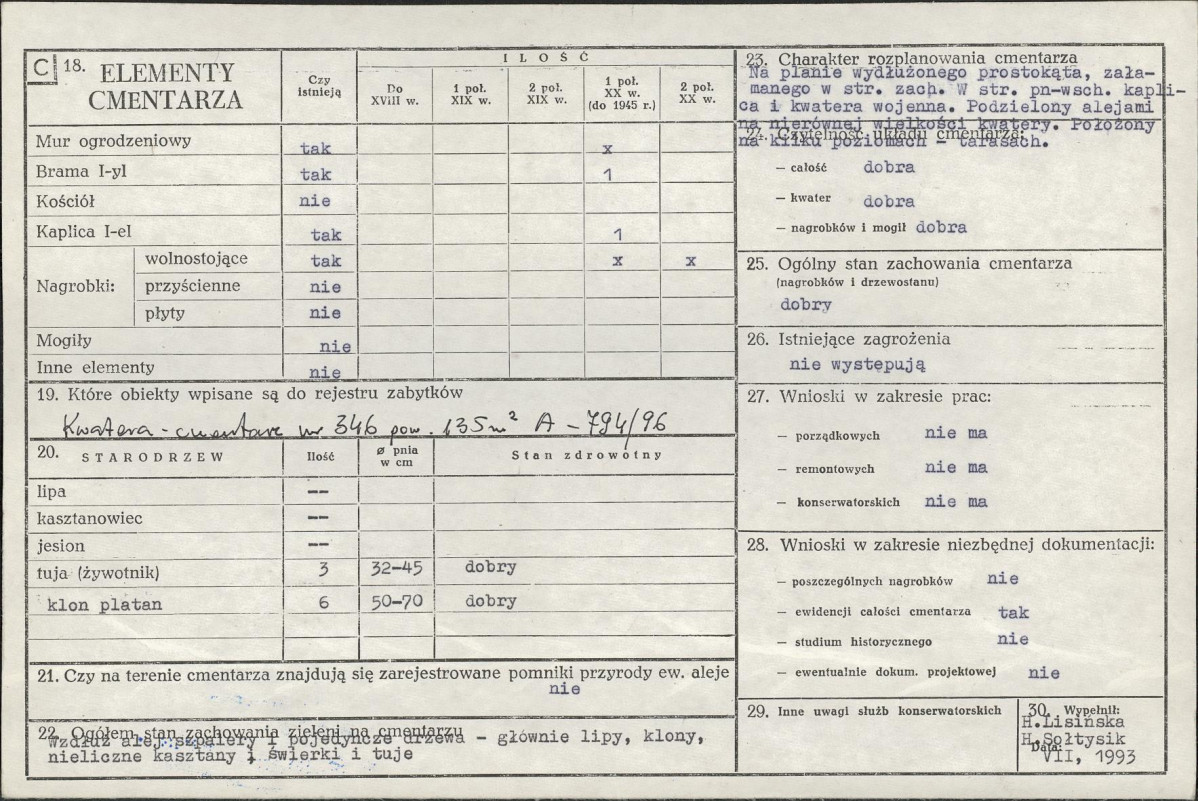 C 18. ELEMENTY CMENTARZA
Czy istnieją
ILOŚĆ
Do XVIII w.
1 poł. XIX w.
2 poł. XIX w.
1 poł. XX w. (do 1945 r.)
2 poł. XX w.
Mur ogrodzeniowy tak x
Brama I-yl tak 1
Kościół nie
Kaplica I-el tak 1
Nagrobki:
wolnostojące tak x x
przyścienne nie
płyty nie
Mogiły nie
Inne elementy nie
19. Które obiekty wpisane są do rejestru zabytków
Kwatera - cmentarz nr 346 pow. 135 m² A - 794/96
20. STARODRZEW Ilość ø pnia w cm Stan zdrowotny
lipa --
kasztanowiec --
jesion --
tuja (żywotnik) 3 32-45 dobry
klon platan 6 50-70 dobry
21. Czy na terenie cmentarza znajdują się zarejestrowane pomniki przyrody ew. aleje
nie
22. Ogółem stan zachowania zieleni na cmentarzu
wzdłuż alej szpalery i pojedyncze drzewa - głównie lipy, klony,
nieliczne kasztany i świerki i tuje
23. Charakter rozplanowania cmentarza
Na planie wydłużonego prostokąta, zała-
manego w str. zach. W str. pn-wsch. kapli-
ca i kwatera wojenna. Podzielony alejami
na nierównej wielkości kwatery. Położony
na kilku poziomach - tarasach.
24. Czytelność układu cmentarza:
— całość dobra
— kwater dobra
— nagrobków i mogił dobra
25. Ogólny stan zachowania cmentarza
(nagrobków i drzewostanu)
dobry
26. Istniejące zagrożenia
nie występują
27. Wnioski w zakresie prac:
— porządkowych nie ma
— remontowych nie ma
— konserwatorskich nie ma
28. Wnioski w zakresie niezbędnej dokumentacji:
— poszczególnych nagrobków nie
— ewidencji całości cmentarza tak
— studium historycznego nie
— ewentualnie dokum. projektowej nie
29. Inne uwagi służb konserwatorskich
30. Wypełnił:
H.Lisińska
H.Sołtysik
Data:
VII, 1993